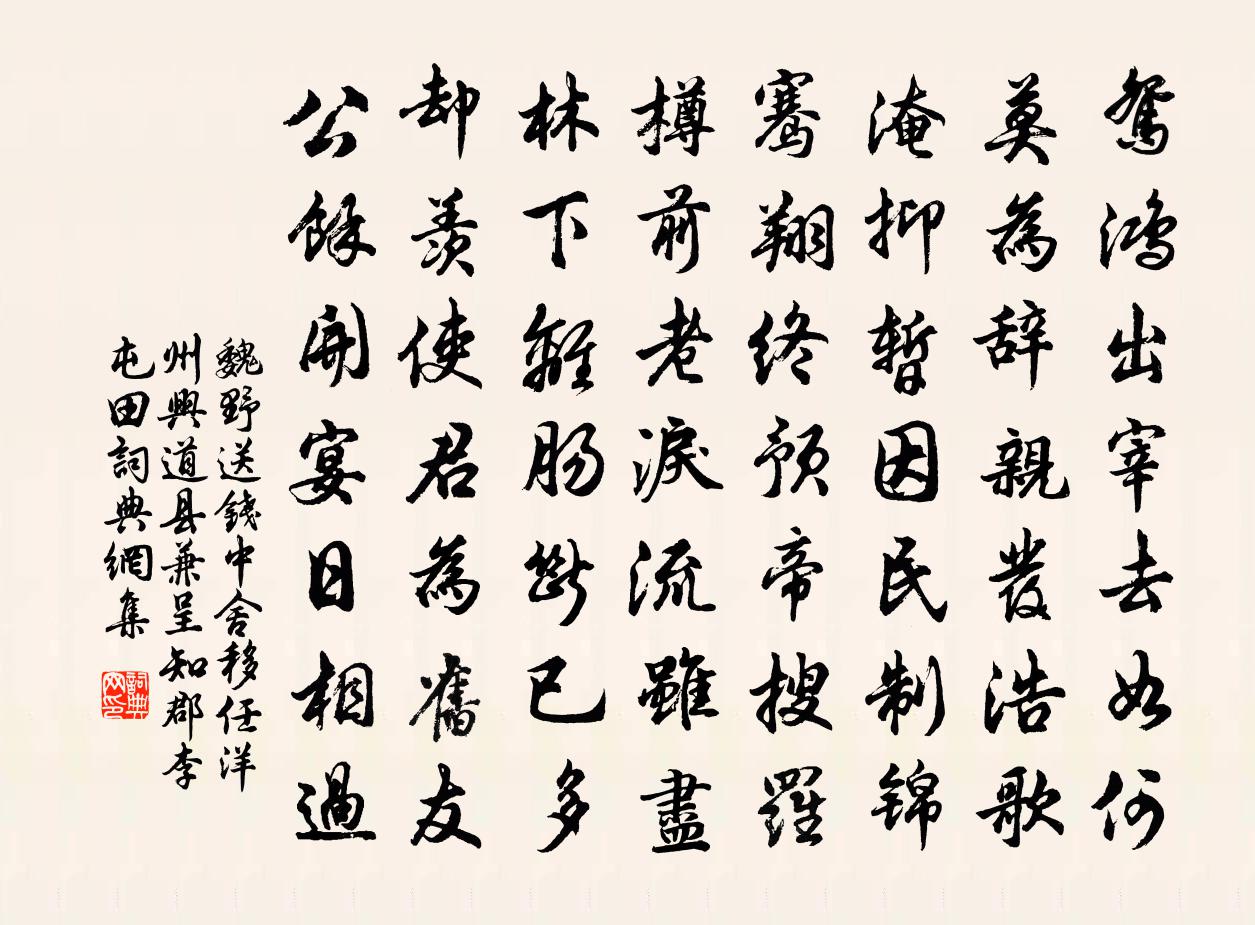 鴛鴻出宰去如何
莫為辞親發浩歌
淹抑暫因民制錦
騫翔終預帝搜羅
樽前老淚流雖盡
林下離腸斷已多
却羨使君為舊友
公餘開宴日相過
魏野送錢中舍移任洋
州興道县兼呈知郡李
屯田詞典網集
詞典
网印